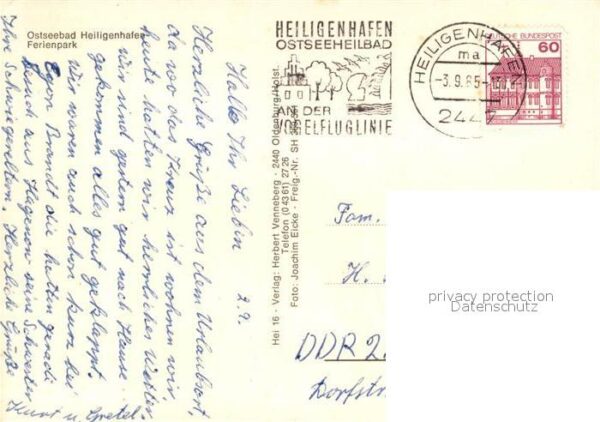 Ostseebad Heiligenhafen
Ferienpark
HEILIGENHAFEN
OSTSEEHEILBAD
AN DER
VOGELFLUGLINIE
HEILIGENHAFEN
ma
-3.9.85-
2447
DEUTSCHE BUNDESPOST
60
Hei 16 - Verlag: Herbert Venneberg - 2440 Oldenburg/Holst.
Telefon (0 43 61) 27 26
Foto: Joachim Eicke - Freig.-Nr. SH
2.9.
Hallo Ihr Lieben
Herzliche Grüße aus dem Urlaubsort,
da wo das Kreuz ist wohnen wir,
heute hatten wir herrliches Wetter
wir sind gestern gut nach Hause
gekommen alles gut geklappt.
Wir waren auch schon kurz bei
Egon Brandt die hatten gerade
Besuch aus Hagenow seine Schwester
Ihre Schwiegereltern. Herzliche Grüße
Kurt u. Gretel.
Fam.
H.
DDR 2
Dorfstr
privacy protection
Datenschutz